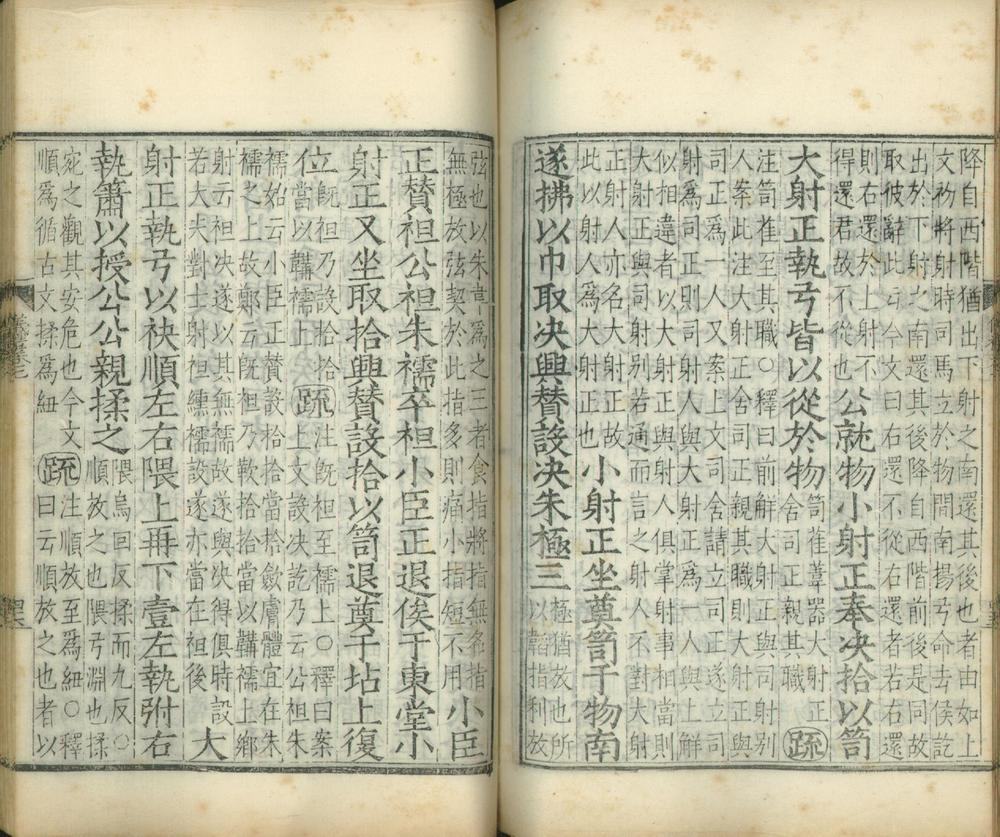 降自西階猶出下射之南還其後也者由如上
文初將射時司馬立於物間南揚弓命去侯訖
出於下射之南還其後降自西階前後是同故
取彼辭此云今文曰右還不從右還者若右還
則右還於上射不
得還君故不從也
公就物小射正奉决拾以笥
大射正執弓皆以從於物
笥萑葦器大射正
舍司正親其職
疏
注笥萑至其職○釋曰前解大射正與司射別
人案此注大射正舍司正親其職則大射正與
司正爲一人又案上文司舍請立司正遂立司
射爲司正則司射人與大射正爲一人與上解
似相違者以大射正與射人俱掌射事相當則
大射正與司射别若通而言之射人不對大射
正射人亦名大射正故
此以射人爲大射正也
小射正坐奠笥于物南
遂拂以巾取决興贊設决朱極三
極猶放也所
以韜指利放
弦也以朱韋爲之三者食指將指無名指
無極放弦契於此指多則痛小指短不用
小臣
正贊袒公袒朱襦卒袒小臣正退俟于東堂小
射正又坐取拾興贊設拾以笥退奠于坫上復
位
既袒乃設拾拾
當以韝襦上
疏
注既袒至襦上○釋曰案
上文設决訖乃云公袒朱
襦如云小臣正贊設拾當拾斂膚體宜在朱
襦之上故鄭云既袒乃設拾拾當以韝襦上鄉
射云袒决遂以其無襦故遂與决得俱時設
若大夫對士射袒纁襦設遂亦當在袒後
大
射正執弓以袂順左右隈上再下壹左執弣右
執簫以授公公親揉之
隈烏回反揉而九反○
順放之也隈弓淵也揉
宛之觀其安危也今文
順爲循古文揉爲紐
疏
注順放至爲紐○釋
曰云順放之也者以